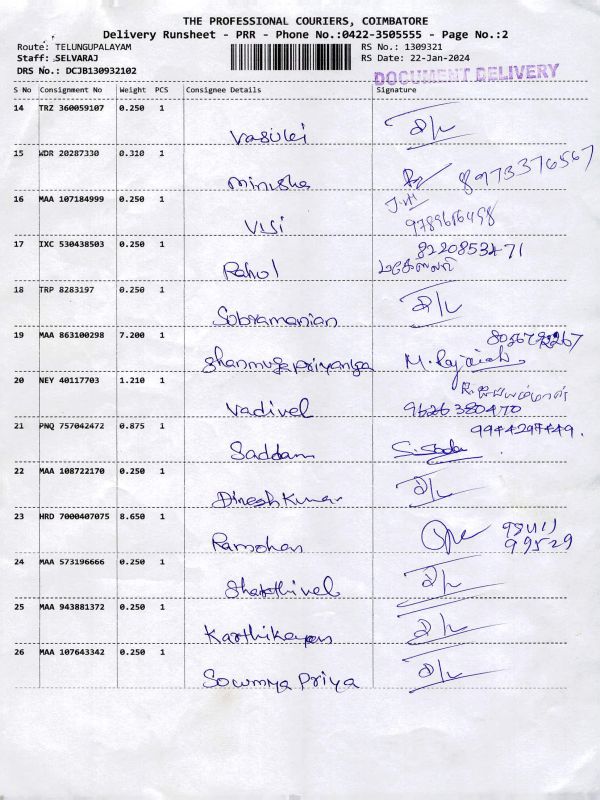 THE PROFESSIONAL COURIERS, COIMBATORE
Delivery Runsheet - PRR - Phone No.:0422-3505555 - Page No.:2
Route: TELUNGUPALAYAM RS No.: 1309321
Staff: .SELVARAJ RS Date: 22-Jan-2024
DRS No.: DCJB130932102 DOCUMENT DELIVERY
S No Consignment No Weight PCS Consignee Details Signature
14 TRZ 360059107 0.250 1
Vasuki
15 WDR 20287330 0.310 1
Minusha 8973376567
16 MAA 107184999 0.250 1
VISI 9789616498
17 IXC 530438503 0.250 1 8220853471
Rahul
18 TRP 8283197 0.250 1
Subramanian
19 MAA 863100298 7.200 1
Shanmugapriyanga
20 NEY 40117703 1.210 1
Vadivel 9626380470
21 PNQ 757042472 0.875 1 9944294449.
Saddam
22 MAA 108722170 0.250 1
Dinesh Kumar
23 HRD 7000407075 8.650 1
Ramohan 99529
24 MAA 573196666 0.250 1
Sharthivel
25 MAA 943881372 0.250 1
Karthikeyan
26 MAA 107643342 0.250 1
Sowmya Priya